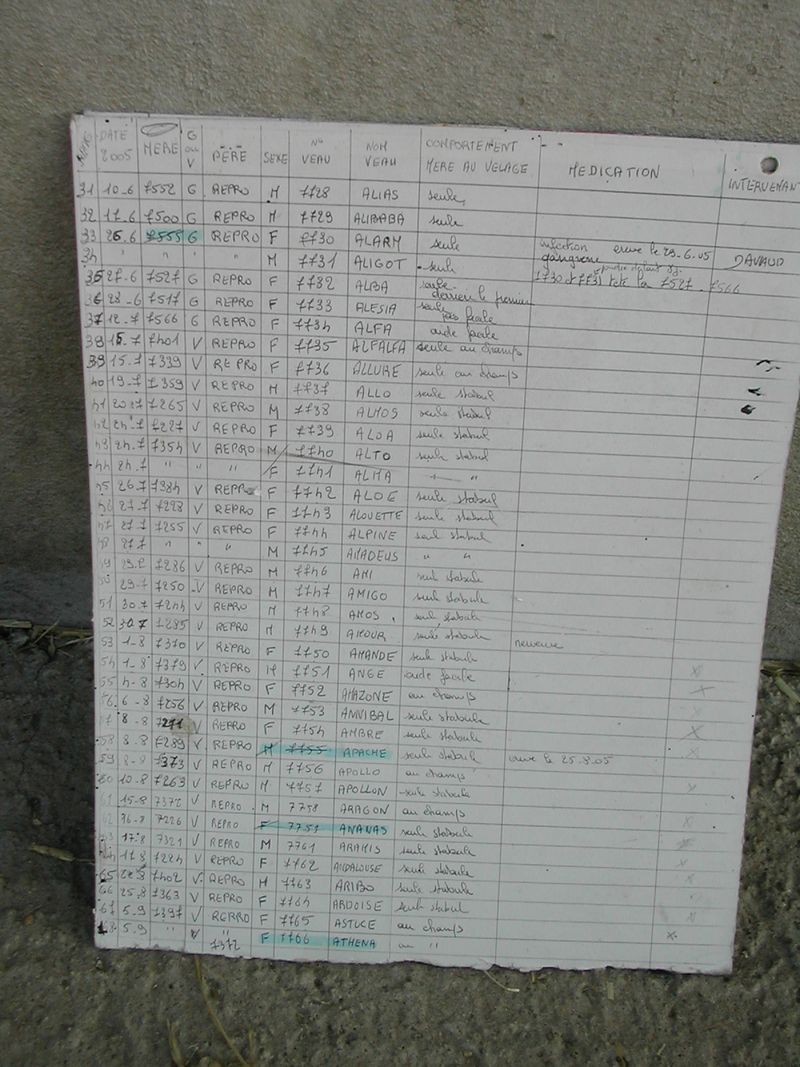 REPRO DATE 2005 MERE G ou V PÈRE SEXE N° VEAU NOM VEAU COMPORTEMENT MERE AU VELAGE MEDICATION INTERVENANT
31 10-6 7552 G REPRO M 7728 ALIAS seule
32 17-6 7500 G REPRO M 7729 ALIBABA seule
33 26.6 7555 G REPRO F 7730 ALARM seule infection creve le 29.6.05
34 " " " " M 7731 ALIGOT seule gangrene DAVAUD
35 27-6 7527 G REPRO F 7732 ALBA seule 1730 et 7731 tété la 7527 - 7566
36 28-6 7517 G REPRO F 7733 ALESIA seule
37 12-7 7566 G REPRO F 7734 ALFA aide facile
38 15-7 7401 V REPRO F 7735 ALFALFA seule au champs
39 15-7 7339 V REPRO F 7736 ALLURE seule au champs
40 19-7 7359 V REPRO M 7737 ALLO seule stabul
41 20-7 7265 V REPRO M 7738 ALMOS seule stabul
42 24-7 7227 V REPRO F 7739 ALOA seule stabul
43 24-7 7354 V REPRO M 7740 ALTO seule stabul
44 24-7 " " " F 7741 ALMA " "
45 26-7 7384 V REPRO F 7742 ALOE seule stabul
46 27-7 7298 V REPRO F 7743 ALOUETTE seule stabul
47 27-7 7255 V REPRO F 7744 ALPINE seul stabul
48 27-7 " " " M 7745 AMADEUS " "
49 7286 V REPRO M 7746 AMI seul stabule
50 29-7 7250 V REPRO M 7747 AMIGO seul stabule
51 30-7 7244 V REPRO M 7748 AMOS seul stabule
52 30-7 7285 V REPRO M 7749 AMOUR seule stabule
53 1-8 7310 V REPRO F 7750 AMANDE seule stabule
54 1-8 7379 V REPRO M 7751 ANGE aide facile
55 4-8 7304 V REPRO F 7752 AMAZONE au champs
56 6-8 7256 V REPRO M 7753 ANNIBAL seule stabule
57 8-8 7271 V REPRO F 7754 AMBRE seule stabule
58 8-8 7289 V REPRO M 7755 APACHE seule stabule creve le 25.8.05
59 8-8 7373 V REPRO M 7756 APOLLO au champs
60 10-8 7263 V REPRO M 7757 APOLLON seule stabule
61 15-8 7372 V REPRO M 7758 ARAGON au champs
62 16-8 7226 V REPRO F 7751 ANANAS seule stabule
63 17-8 7321 V REPRO M 7761 ARAMIS seule stabule
64 17-8 7224 V REPRO F 7762 ANDALOUSE seule stabule
65 7402 V REPRO M 7763 ARIBO seule stabule
66 25-8 7363 V REPRO F 7764 ARDOISE seule stabul
67 5-9 7397 V REPRO F 7765 ASTUCE au champs
68 5.9 " V " F 7766 ATHENA au "
7372